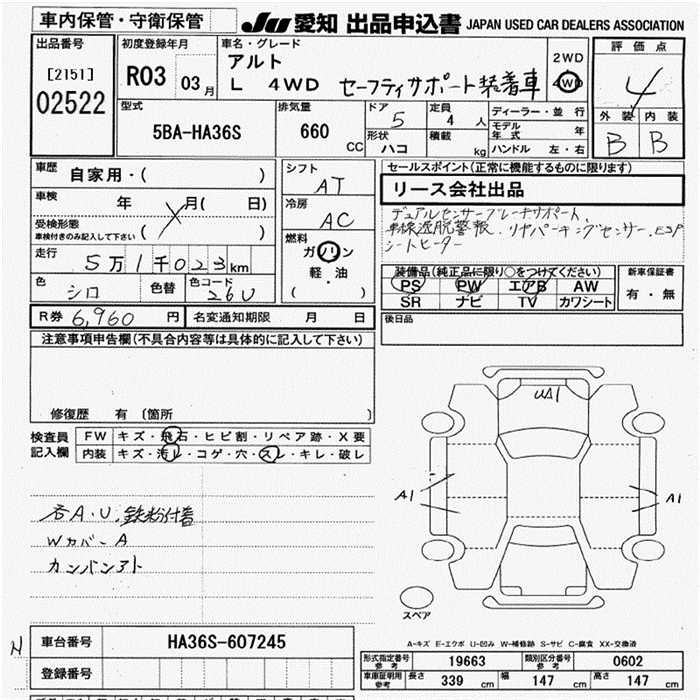 車内保管・守衛保管
JU 愛知 出品申込書 JAPAN USED CAR DEALERS ASSOCIATION
出品番号
[2151]
02522
初度登録年月
R03 03月
車名・グレード
アルト
L 4WD セーフティサポート装着車
2WD
4WD
評価点
4
外装 内装
B B
型式
5BA-HA36S
排気量
660 CC
ドア
5
定員
4 人
形状
ハコ
積載
kg
ディーラー・並行
モデル年式 年
ハンドル 左・右
車歴
自家用・( )
車検
年 月( 日)
受検形態
車検付きのみ記入して下さい ( )
走行
5万1千023km
色
シロ
色替
色コード
26U
シフト
AT
冷房
AC
燃料
ガソリン
軽・油
( )
セールスポイント(正常に機能するものに限ります)
リース会社出品
デュアルセンサーブレーキサポート、
車線逸脱警報、リヤパーキングセンサー、ESP
シートヒーター
装備品(純正品に限り○をつけてください)
PS PW エアB AW
SR ナビ TV カワシート
新車保証書
有・無
R券 6,960 円
名変通知期限 月 日
後日品
注意事項申告欄(不具合内容等は具体的に記入して下さい)
修復歴 有 〔箇所 〕
検査員
記入欄
FW キズ・飛石・ヒビ割・リペア跡・X要
内装 キズ・汚レ・コゲ・穴・スレ・キレ・破レ
各A・U、鉄粉付着
Wカバー A
カンバンアト
UA1
A1
A1
スペア
A-キズ E-エクボ U-凹み W-補修跡 S-サビ C-腐食 XX-交換済
N
車台番号 HA36S-607245
登録番号
形式指定番号 参考 19663
類別区分番号 参考 0602
車庫証明用 参考 長さ 339 cm 幅 147 cm 高さ 147 cm